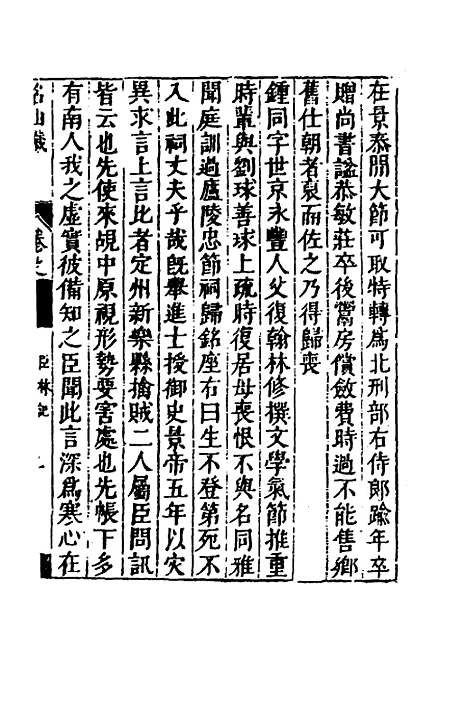 在景泰間大節可取特轉爲北刑部右侍郎踰年卒
贈尚書謚恭敏莊卒後鬻房償斂費時過不能售鄉
舊仕朝者裒而佐之乃得歸喪
鍾同字世京永豐人父復翰林修撰文學氣節推重
時輩與劉球善球上疏時復居母喪恨不與名同雅
聞庭訓過廬陵忠節祠歸銘座右曰生不登第死不
入此祠丈夫乎哉旣舉進士授御史景帝五年以灾
異求言上言比者定州新樂縣擒賊二人屬臣問訊
皆云也先使來覘中原視形勢要害處也先帳下多
有南人我之虛實彼備知之臣聞此言深爲寒心在
名山藏 卷之 臣林記